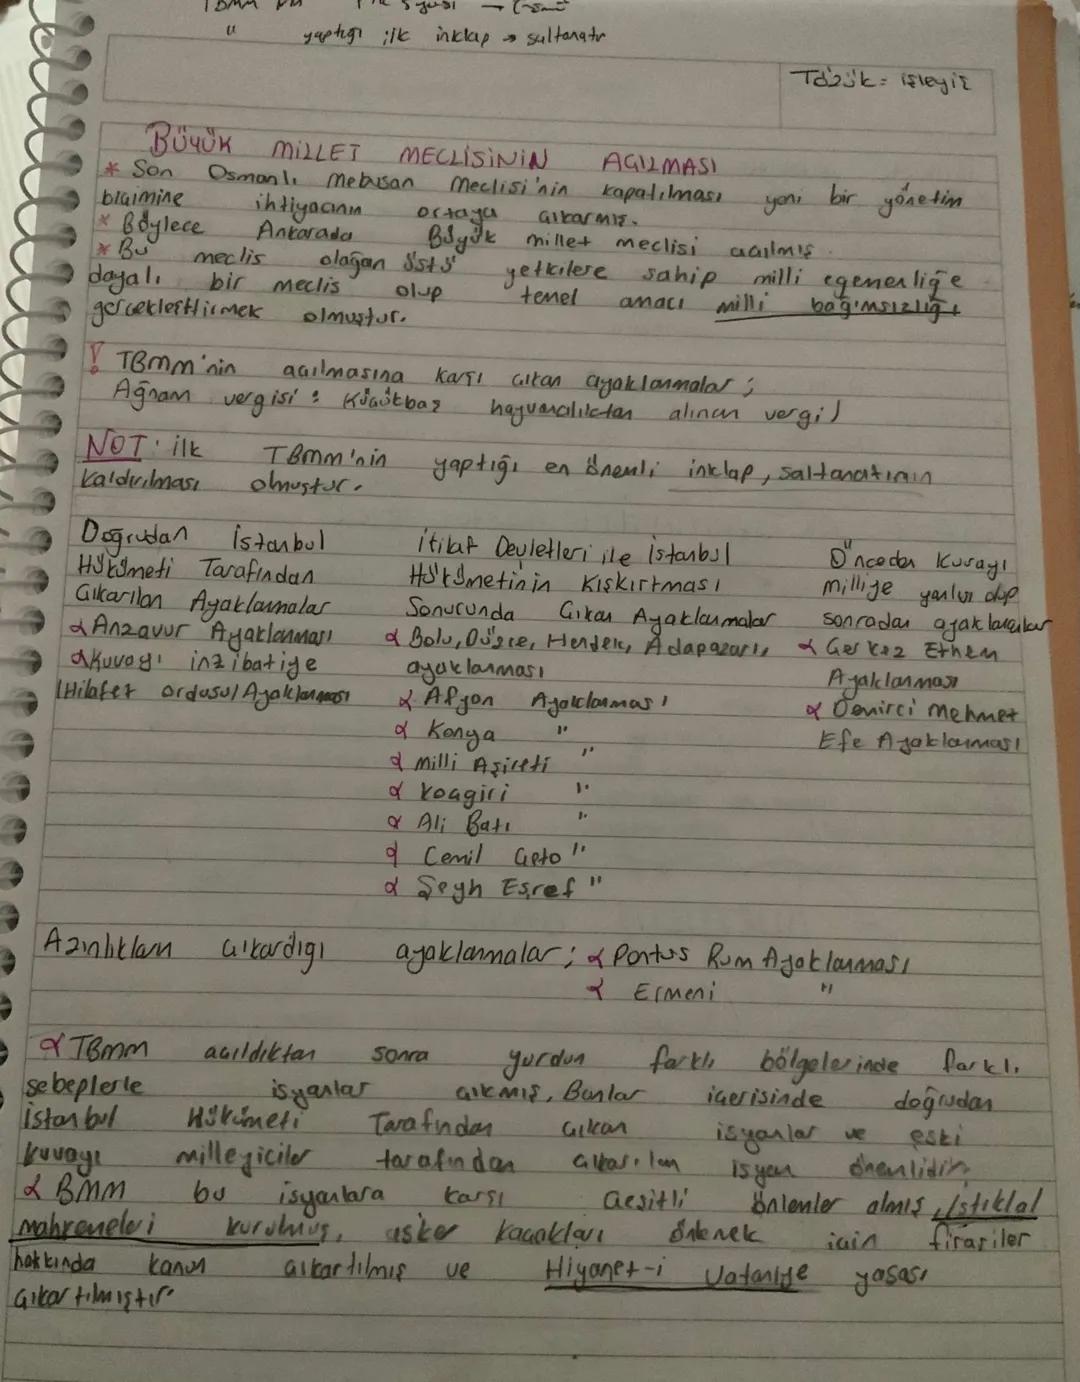 " yaptığı ilk inklap → saltanatı
Tüzük = işleyiş
BÜYÜK MİLLET MECLİSİNİN AÇILMASI
* Son Osmanlı Mebusan Meclisi'nin kapatılması yeni bir yönetim
biçimine ihtiyacının ortaya çıkarmış.
* Böylece Ankarada Büyük millet meclisi açılmış.
* Bu meclis olağan üstü yetkilere sahip milli egemenliğe
dayalı bir meclis olup temel amacı milli bağımsızlığı
gerçekleştirmek olmuştur.
! TBMM'nin açılmasına karşı çıkan ayaklanmalar ;
Ağnam vergisi : Küçükbaş hayvancılıktan alınan vergi)
NOT: ilk TBMM'nin yaptığı en önemli inklap, saltanatının
kaldırılması olmuştur.
Doğrudan İstanbul
Hükümeti Tarafından
Çıkarılan Ayaklanmalar
α Anzavur Ayaklanması
α Kuvayı inzibatiye
(Hilafet ordusu) Ayaklanması
İtilaf Devletleri ile İstanbul
Hükümetinin Kışkırtması
Sonucunda Çıkan Ayaklanmalar
α Bolu, Düzce, Hendek, Adapazarı,
ayaklanması
α Afyon Ayaklanması
α Konya "
α Milli Aşireti "
α Koçgiri "
α Ali Batı "
α Cemil Çeto "
α Şeyh Eşref "
Önceden Kuvayı
milliye yanlısı olup
sonradan ayaklananlar
α Çerkez Ethem
Ayaklanması
α Demirci Mehmet
Efe Ayaklanması
Azınlıkların çıkardığı ayaklanmalar ; α Pontus Rum Ayaklanması
α Ermeni "
α TBMM açıldıktan sonra yurdun farklı bölgelerinde farklı
sebeplerle isyanlar çıkmış, Bunlar içerisinde doğrudan
İstanbul Hükümeti Tarafından çıkan isyanlar ve eski
kuvayı milleyiciler tarafından çıkarılan isyan önemlidir.
α BMM bu isyanlara karşı çeşitli önlemler almış, İstiklal
mahkemeleri kurulmuş, asker kaçakları önlemek için firariler
hakkında kanun çıkartılmış ve Hiyanet-i Vataniye yasası
çıkartılmıştır.